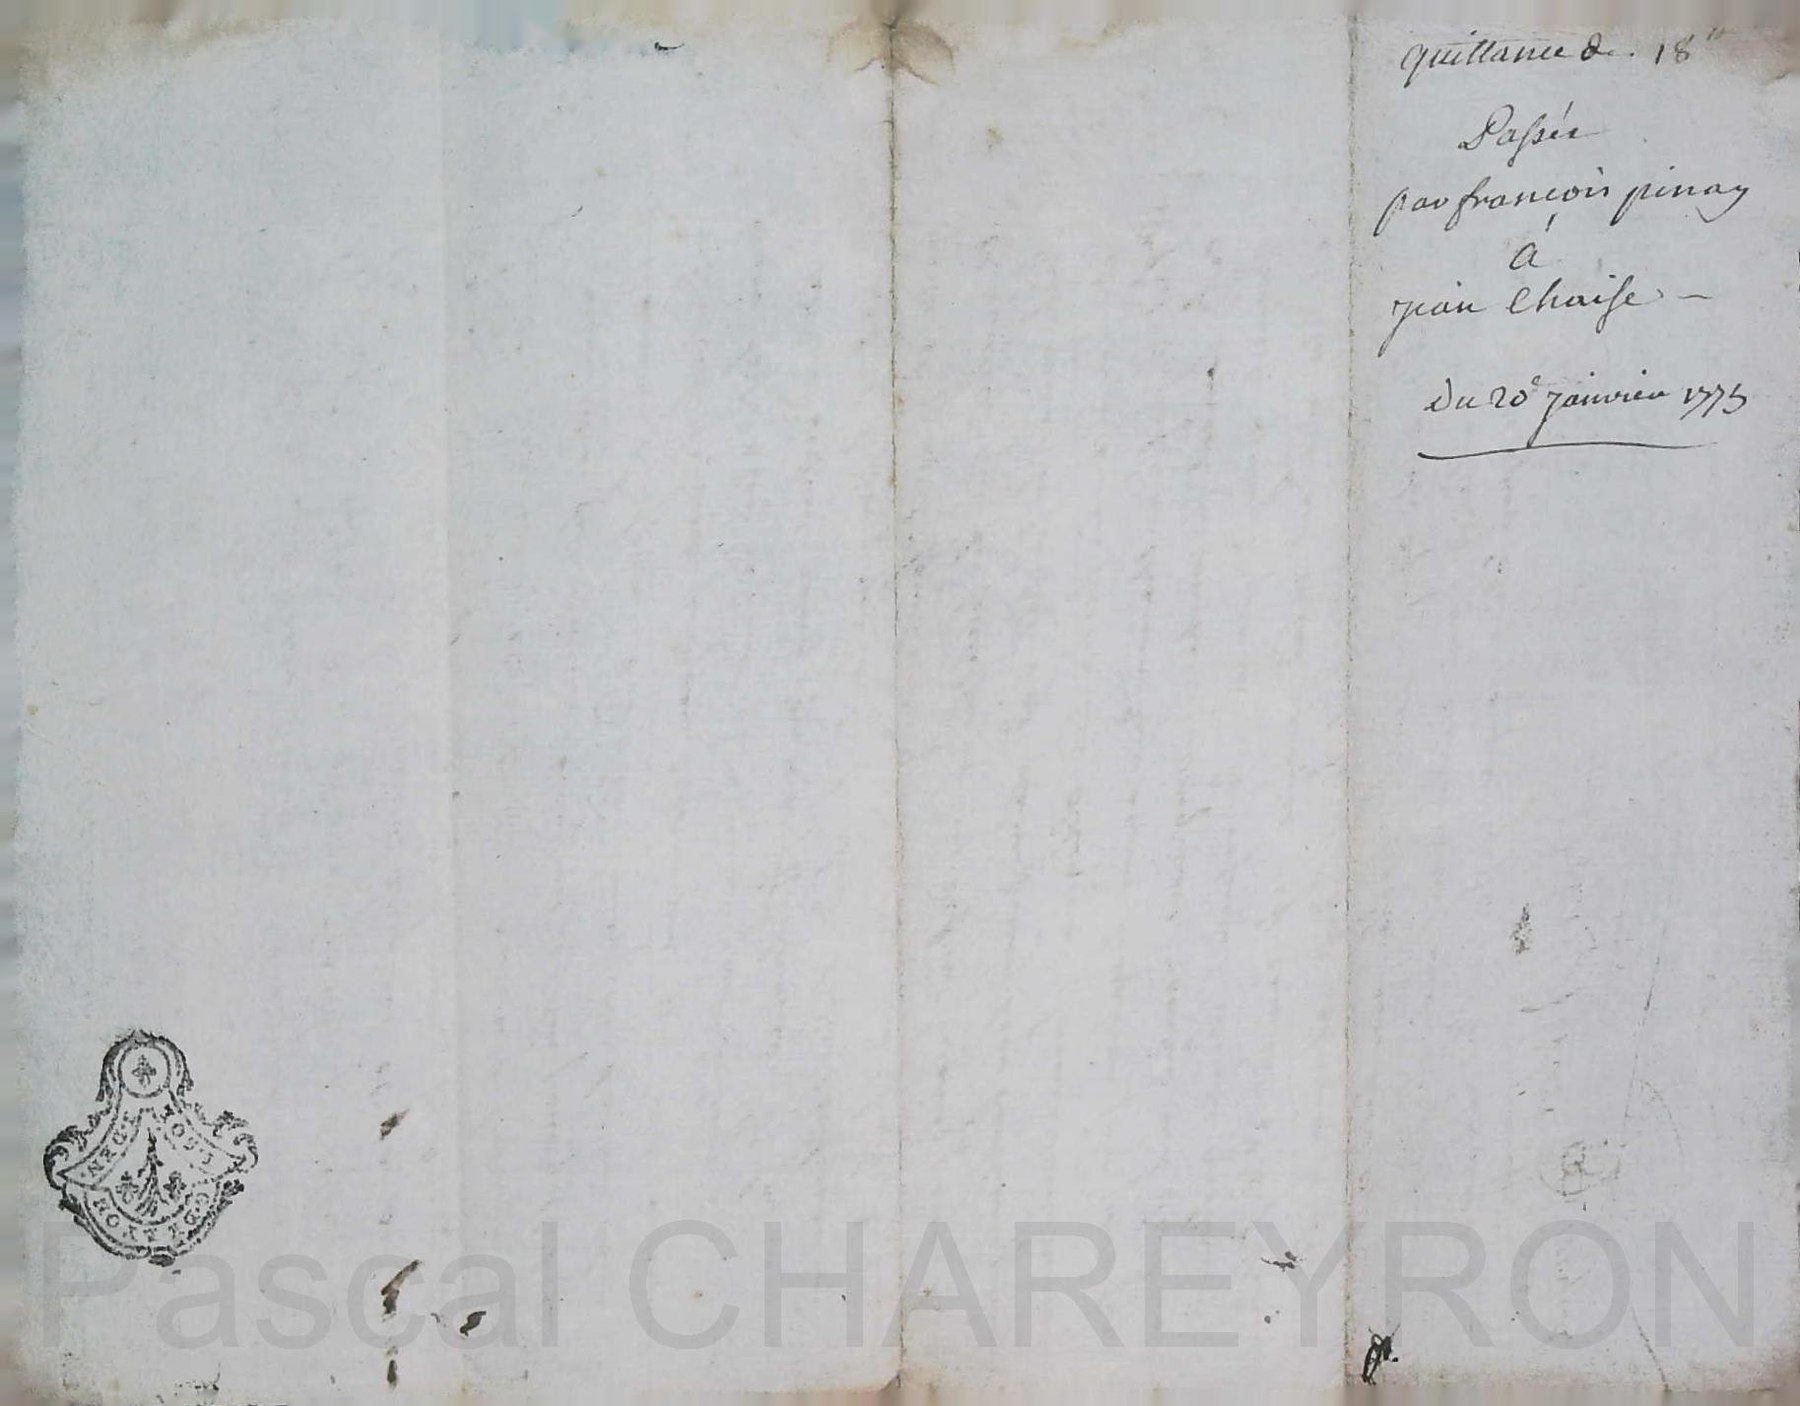 quittance de. 18 ₶
Passée
par françois pinay
à
jean Chaise –
Du 20e janvier 1775
Pascal CHAREYRON